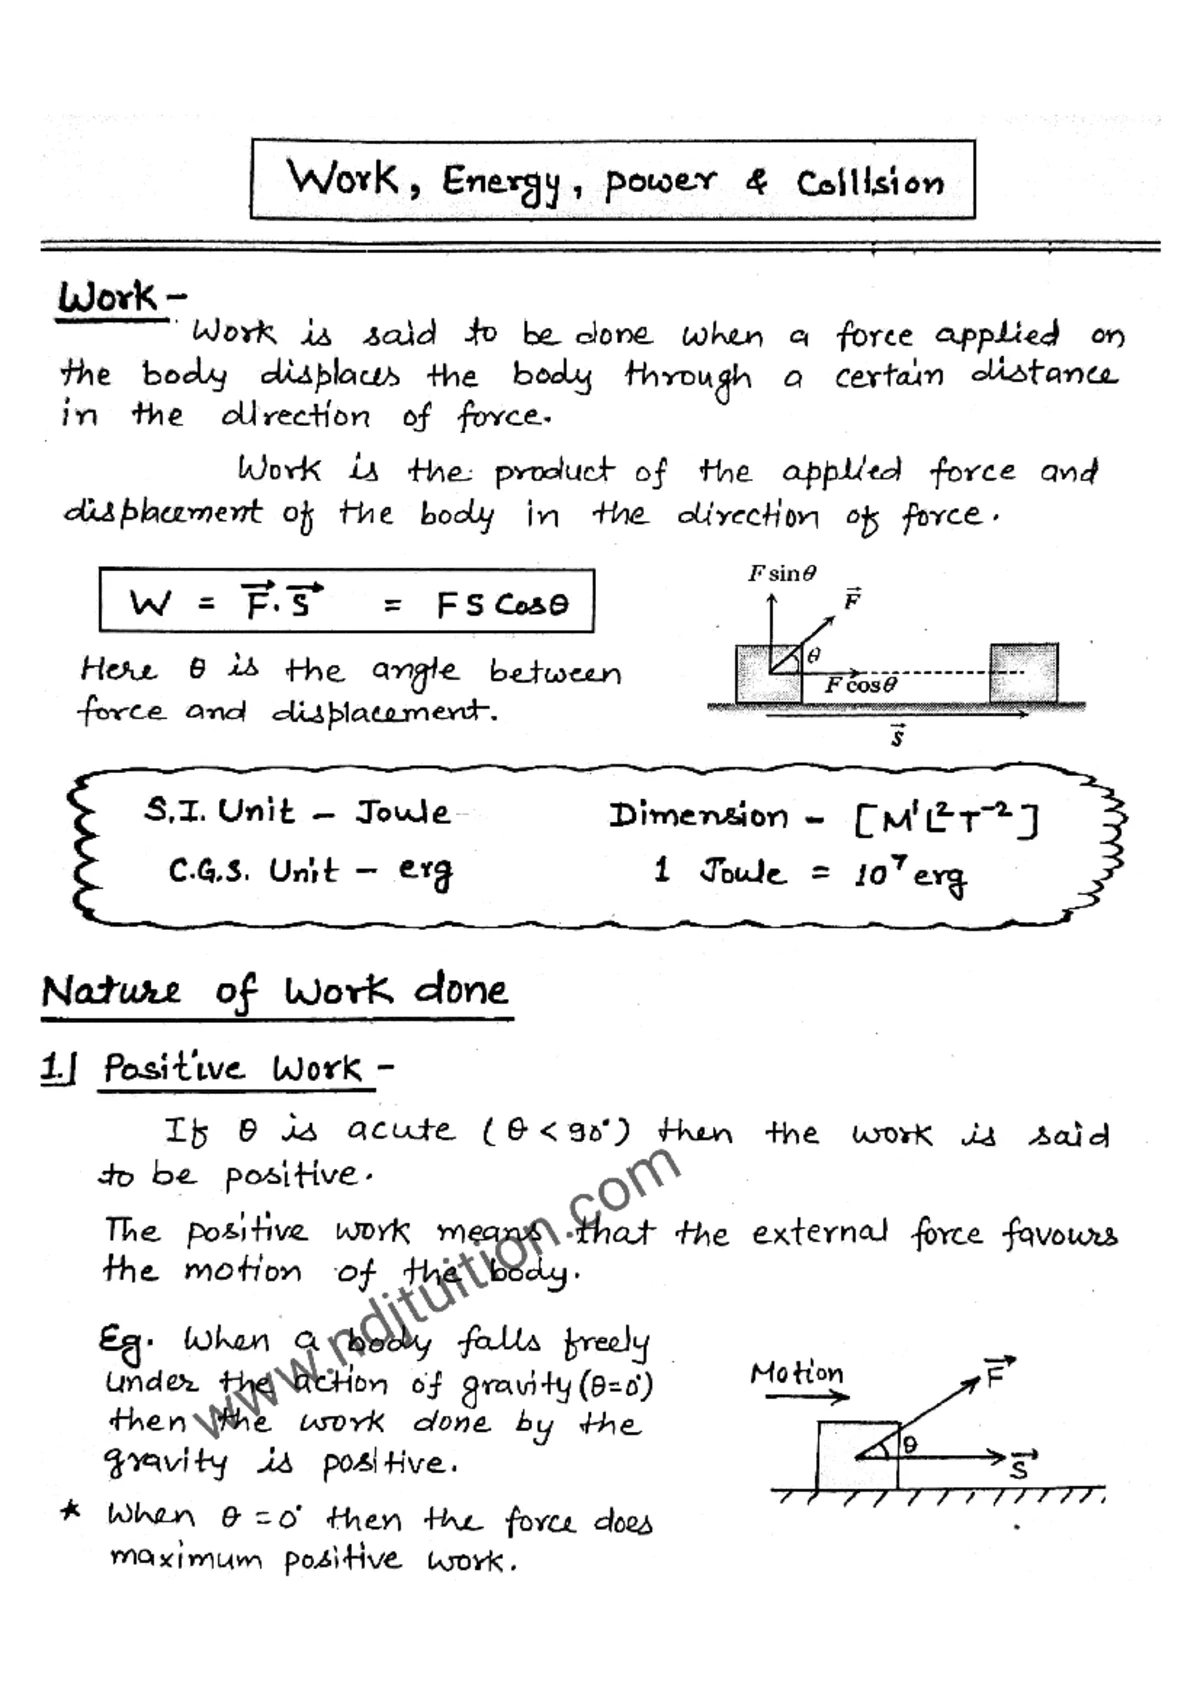 Work, Energy, power & Collision
Work -
Work is said to be done when a force applied on
the body displaces the body through a certain distance
in the direction of force.
Work is the product of the applied force and
displacement of the body in the direction of force.
W = F⃗. S⃗ = F S Cosθ
F sinθ
F⃗
θ
F cosθ
s⃗
Here θ is the angle between
force and displacement.
S.I. Unit - Joule
Dimension - [M¹L²T⁻²]
C.G.S. Unit - erg
1 Joule = 10⁷ erg
Nature of Work done
1.] Positive Work -
If θ is acute (θ < 90°) then the work is said
to be positive.
The positive work means that the external force favours
the motion of the body.
Eg. When a body falls freely
under the action of gravity (θ=0°)
then the work done by the
gravity is positive.
* When θ = 0° then the force does
maximum positive work.
Motion
F⃗
θ
S⃗
www.ndjtuition.com